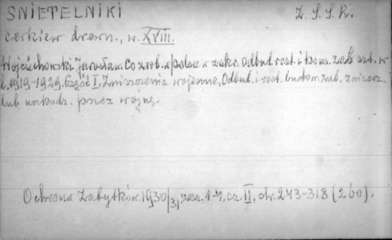 ŚNIETELNIKI Z. S. S. R.
cerkiew drewn., w. XVIII.
Wojciechowski Jarosław. Co zrob. w polsce w zakr. Odbud. rest. i kons. zab. szt. w
l. 1919-1929. Część I. Zniszczenia wojenne, Odbud. i rest. budow. zab. zniszcz.
lub uszkodz. przez wojnę.
Ochrona Zabytków. 1930/31, zesz. 1-4, cz. II, str. 243-318 (260).